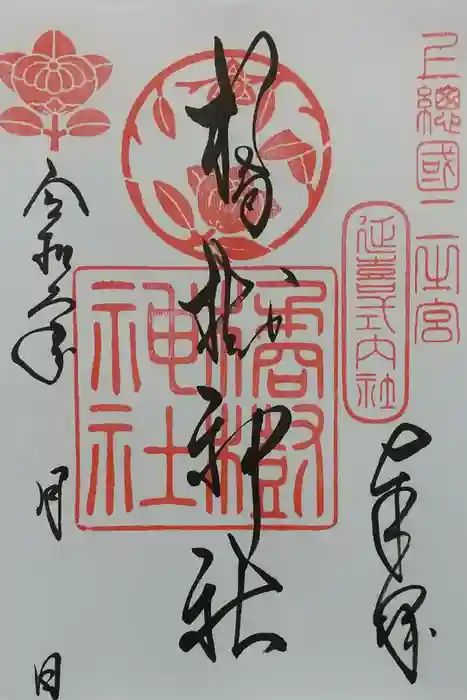 上總國二之宮
延喜式内社
奉拝
橘樹神社
橘樹神社
令和 年
月
日